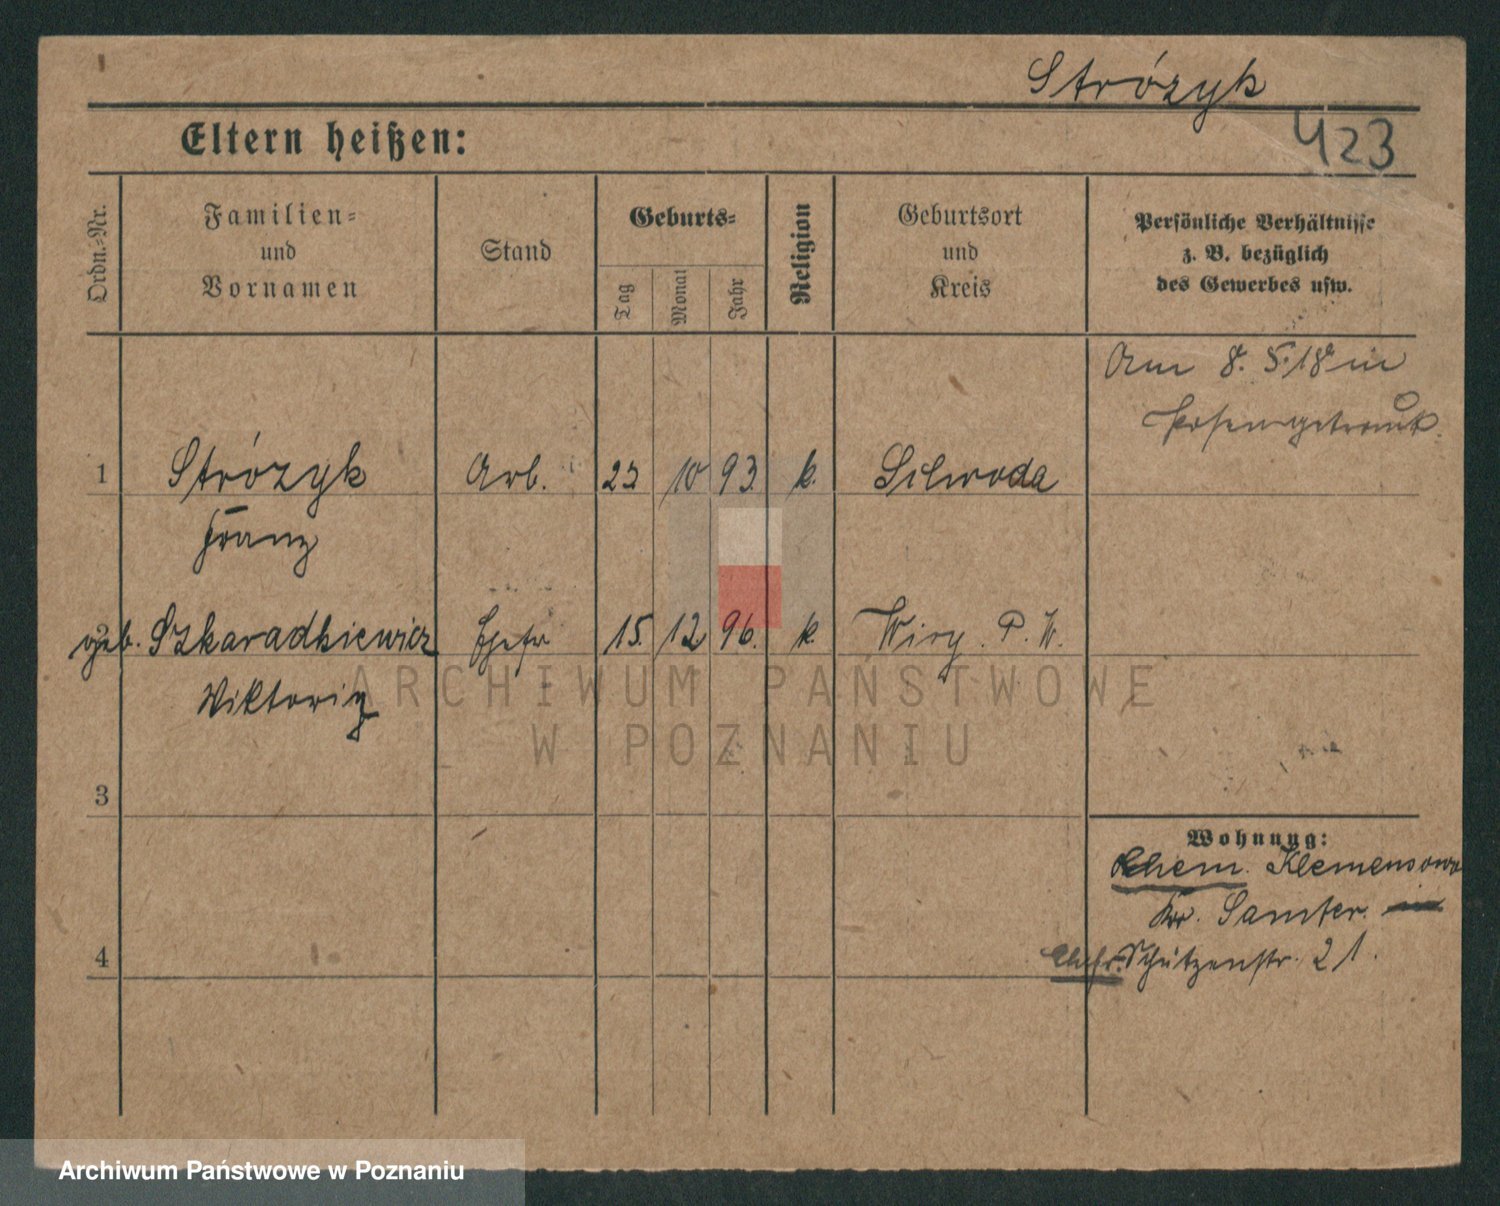 Strózyk
423
Eltern heißen:
Ordn.=Nr.
Familien=
und
Vornamen
Stand
Geburts=
Tag
Monat
Jahr
Religion
Geburtsort
und
Kreis
Persönliche Verhältnisse
z. B. bezüglich
des Gewerbes usw.
Am 8. 5. 18 in
Posen getraut.
1 Strózyk Arb. 23 10 93. k.
Franz
2 geb. Szkaradkiewicz Ehefr 15. 12 96. k. Wiry. P. W.
Wiktoria
ARCHIWUM PAŃSTWOWE
W POZNANIU
3
Wohnung:
Ehem. Klemensowo
Kr. Samter.
4
Ehefr. Schützenstr. 21.
Archiwum Państwowe w Poznaniu